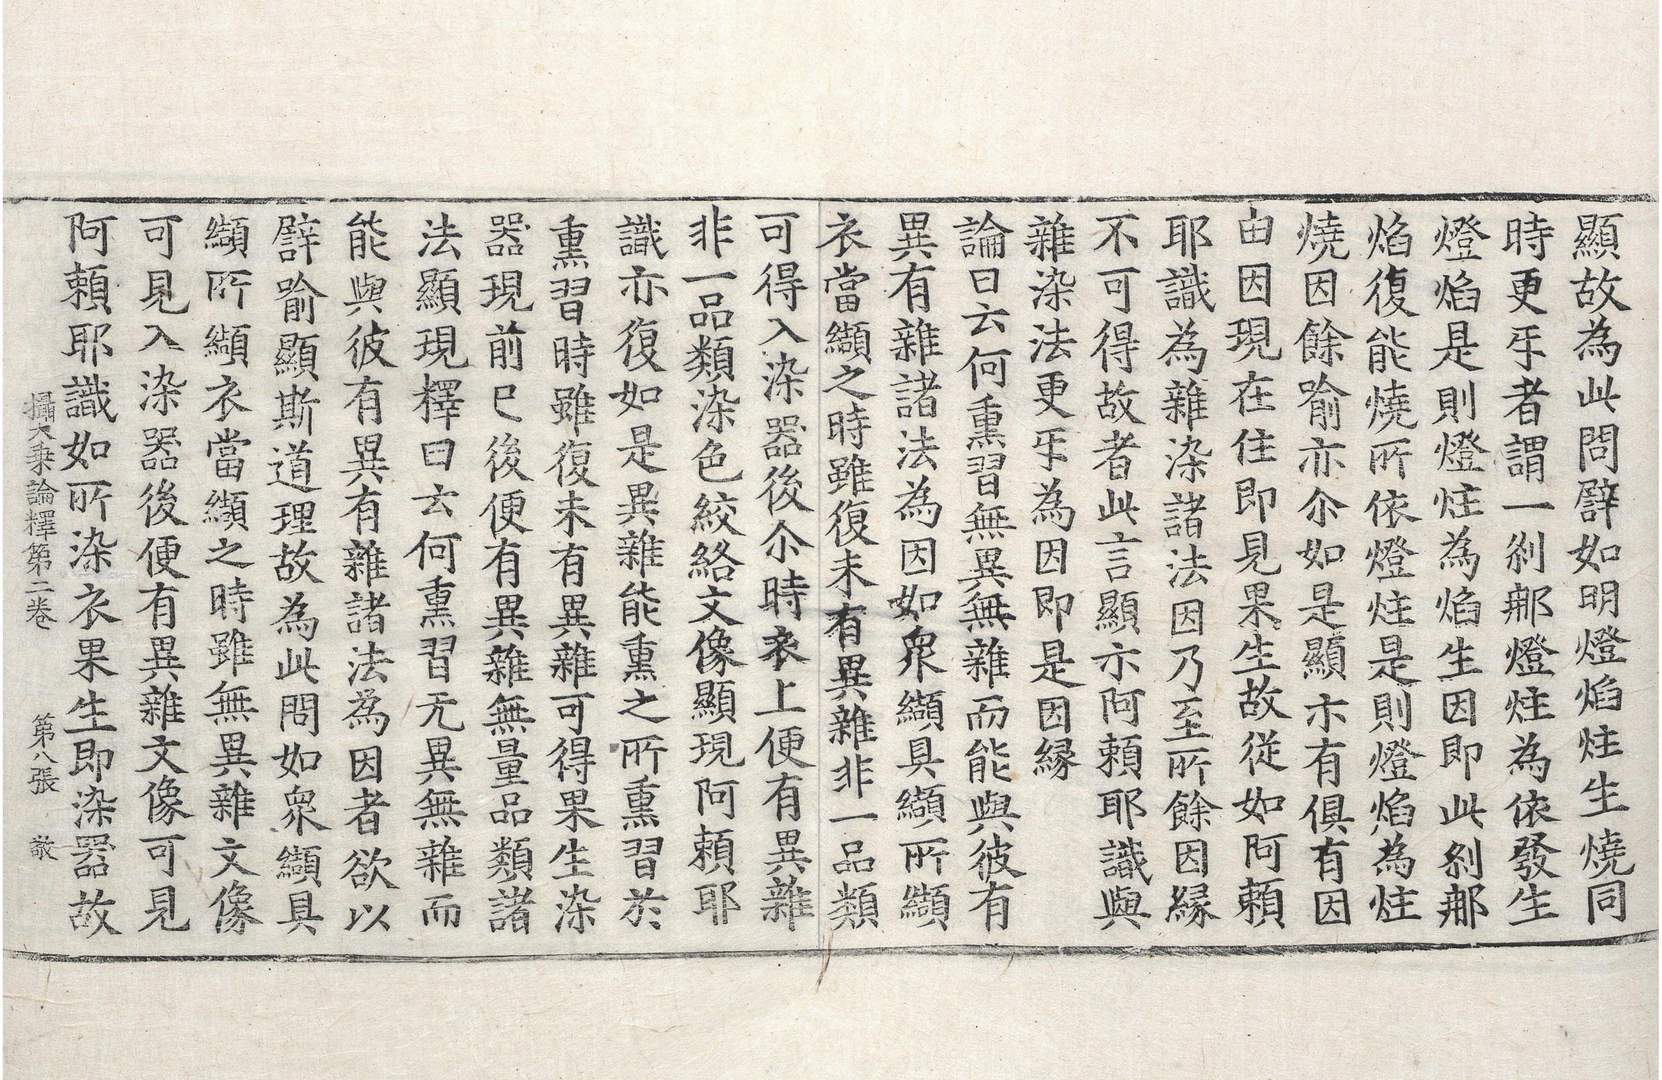 顯故為此問譬如明燈焰炷生燒同
時更㸦者謂一剎那燈炷為依發生
燈焰是則燈炷為焰生因即此剎那
焰復能燒所依燈炷是則燈焰為炷
燒因餘喻亦尒如是顯示有俱有因
由因現在住即見果生故從如阿賴
耶識為雜染諸法因乃至所餘因緣
不可得故者此言顯示阿賴耶識與
雜染法更㸦為因即是因緣
論曰云何熏習無異無雜而能與彼有
異有雜諸法為因如衆纈具纈所纈
衣當纈之時雖復未有異雜非一品類
可得入染器後尒時衣上便有異雜
非一品類染色絞絡文像顯現阿賴耶
識亦復如是異雜能熏之所熏習於
熏習時雖復未有異雜可得果生染
器現前已後便有異雜無量品類諸
法顯現釋曰云何熏習无異無雜而
能與彼有異有雜諸法為因者欲以
譬喻顯斯道理故為此問如衆纈具
纈所纈衣當纈之時雖無異雜文像
可見入染器後便有異雜文像可見
阿賴耶識如所染衣果生即染器故
攝大乘論釋第二卷 第八張 敬